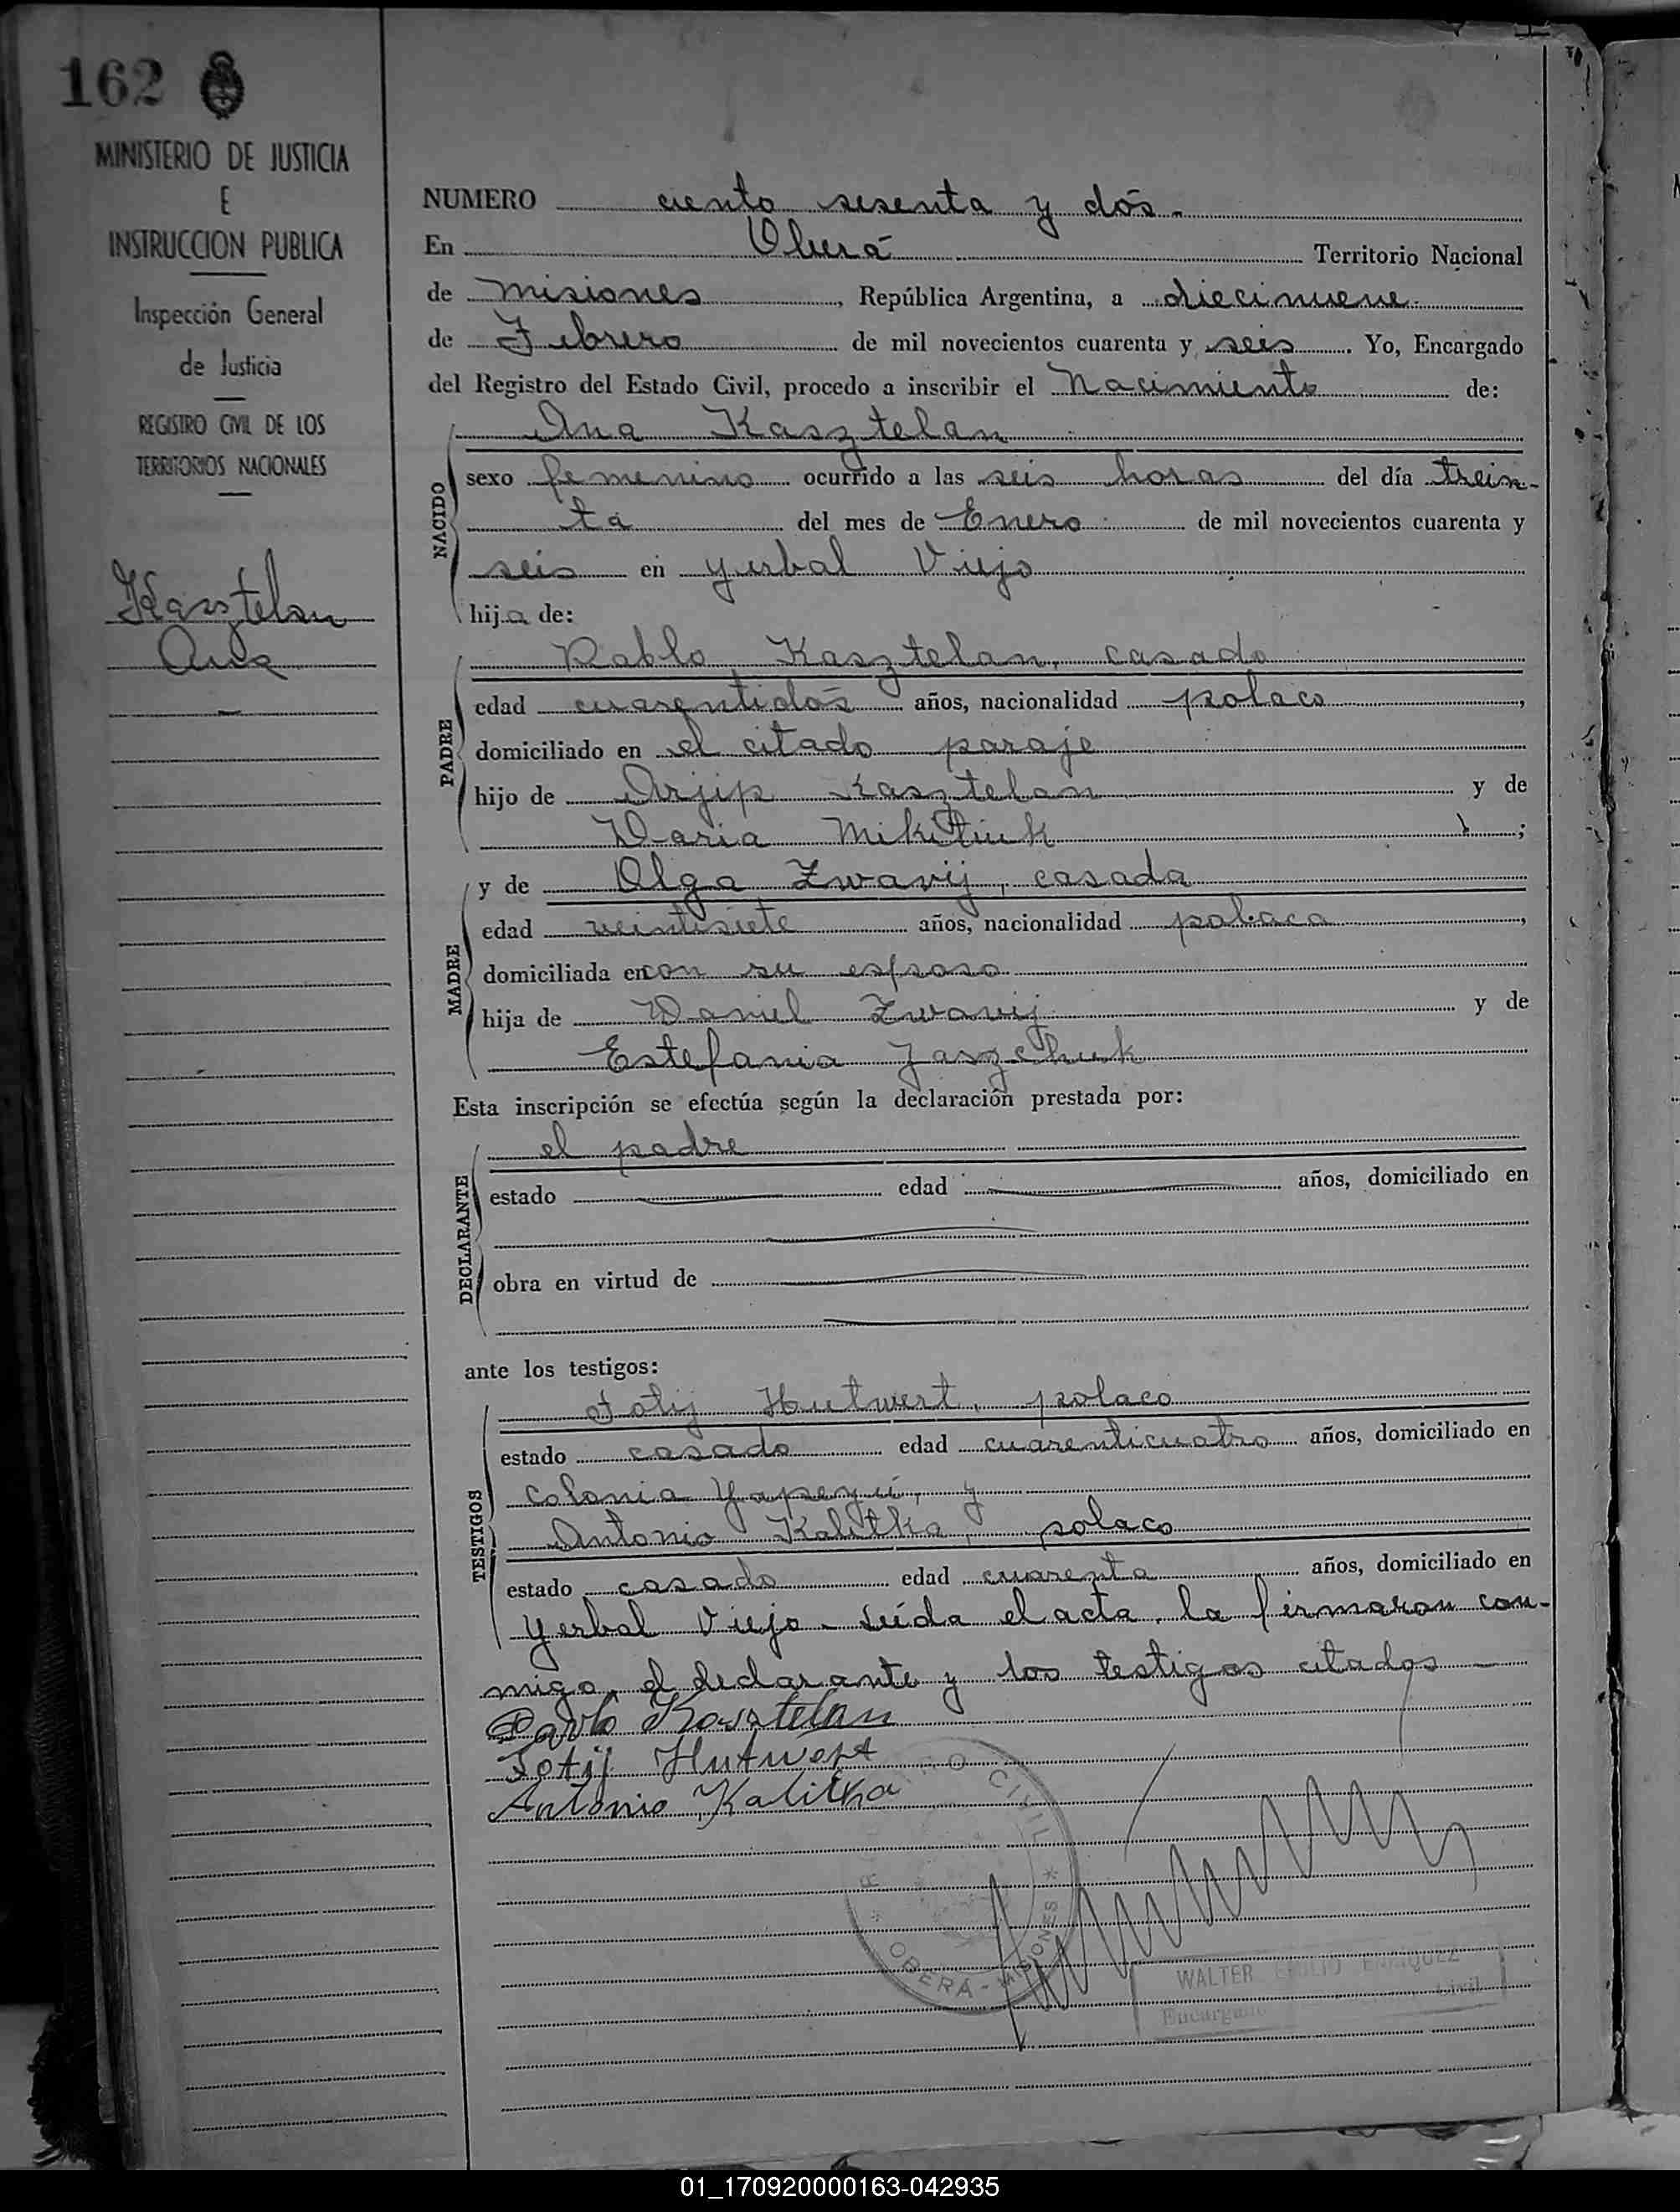 162
MINISTERIO DE JUSTICIA
E
INSTRUCCION PUBLICA
Inspección General
de Justicia
REGISTRO CIVIL DE LOS
TERRITORIOS NACIONALES
Kasztelan
Ana
NUMERO ciento sesenta y dós.-
En Oberá Territorio Nacional
de Misiones, República Argentina, a diecinueve
de Febrero de mil novecientos cuarenta y seis. Yo, Encargado
del Registro del Estado Civil, procedo a inscribir el Nacimiento de:
Ana Kasztelan
NACIDO
sexo femenino ocurrido a las seis horas del día trein-
ta del mes de Enero de mil novecientos cuarenta y
seis en Yerbal Viejo
hija de:
Pablo Kasztelan, casado
PADRE
edad cuarentidós años, nacionalidad polaco,
domiciliado en el citado paraje
hijo de Arjip Kasztelan y de
Daria Mikitiuk;
y de Olga Zwavij, casada
MADRE
edad veintisiete años, nacionalidad polaca,
domiciliada en con su esposo
hija de Daniel Zwavij y de
Estefania Jaszchuk
Esta inscripción se efectúa según la declaración prestada por:
el padre
DECLARANTE
estado edad años, domiciliado en
obra en virtud de
ante los testigos:
Fotij Hutwert, polaco
TESTIGOS
estado casado edad cuarenticuatro años, domiciliado en
Colonia Yapeyú, y
Antonio Kalitka, polaco
estado casado edad cuarenta años, domiciliado en
Yerbal Viejo - Leída el acta, la firmaron con-
migo, el declarante y los testigos citados -
Pavlo Kasztelan
Fotij Hutwert
Antonio Kalitka
CIVIL
OBERÁ - MISIONES
WALTER EMILIO ENRIQUEZ
Civil
01_170920000163-042935